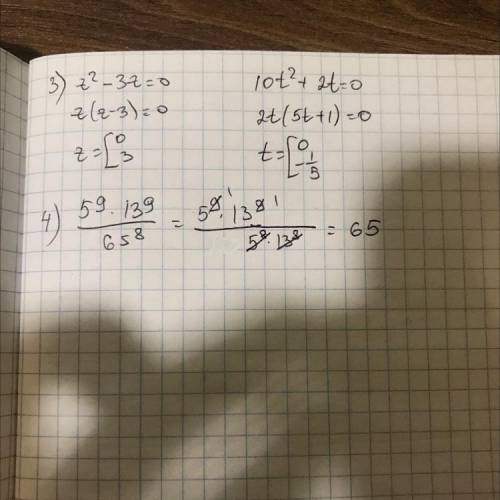 3) z² - 3z = 0
z(z-3) = 0
z = [0 3
10t² + 2t = 0
2t(5t+1) = 0
t = [0 -1/5
4) 5⁹ · 13⁹ / 65⁸ = 5⁹ ¹ · 13⁹ ¹ / 5⁸ · 13⁸ = 65